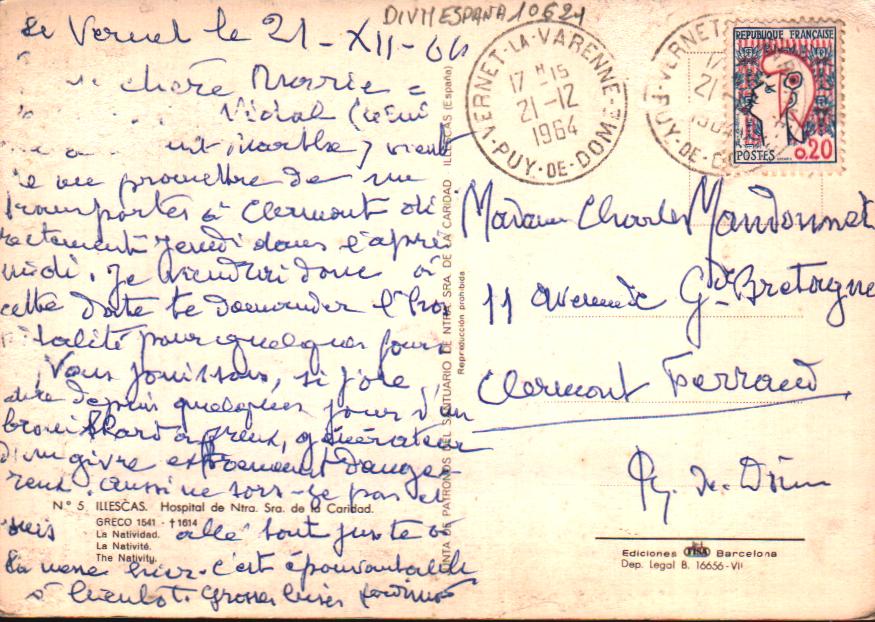 DIVM ESPANA 10621
le Vernet le 21-XII-64
chère
Vidal
vient
me promettre de me
transporter à Clermont di
rectement jeudi dans l'après
midi. Je viendrai donc à
cette date te demander l'hos
pitalité pour quelques jours
Nous jouissons, si j'ose
dire depuis quelques jours d'un
brouillard affreux, générateur
d'un givre extrêmement dange-
reux. Aussi ne sors-je pas et
suis allé tout juste à
la messe hier. C'est épouvantable
à bientôt Grosses bises
VERNET-LA-VARENNE
17 H 15
21-12
1964
PUY-DE-DOME
VERNET
17
21
1964
PUY-DE-DO
REPUBLIQUE FRANÇAISE
POSTES 0,20
Madame Charles Mandonnet
11 avenue Gde Bretagne
Clermont Ferrand
Py. de. Dôme
JUNTA DE PATRONOS DEL SANTUARIO DE NTRA. SRA. DE LA CARIDAD - ILLESCAS (España)
Reproducción prohibida
N.º 5 ILLESCAS. Hospital de Ntra. Sra. de la Caridad.
GRECO 1541 - † 1614
La Natividad.
La Nativité.
The Nativity.
Ediciones FISA Barcelona
Dep. Legal B. 16656-VII